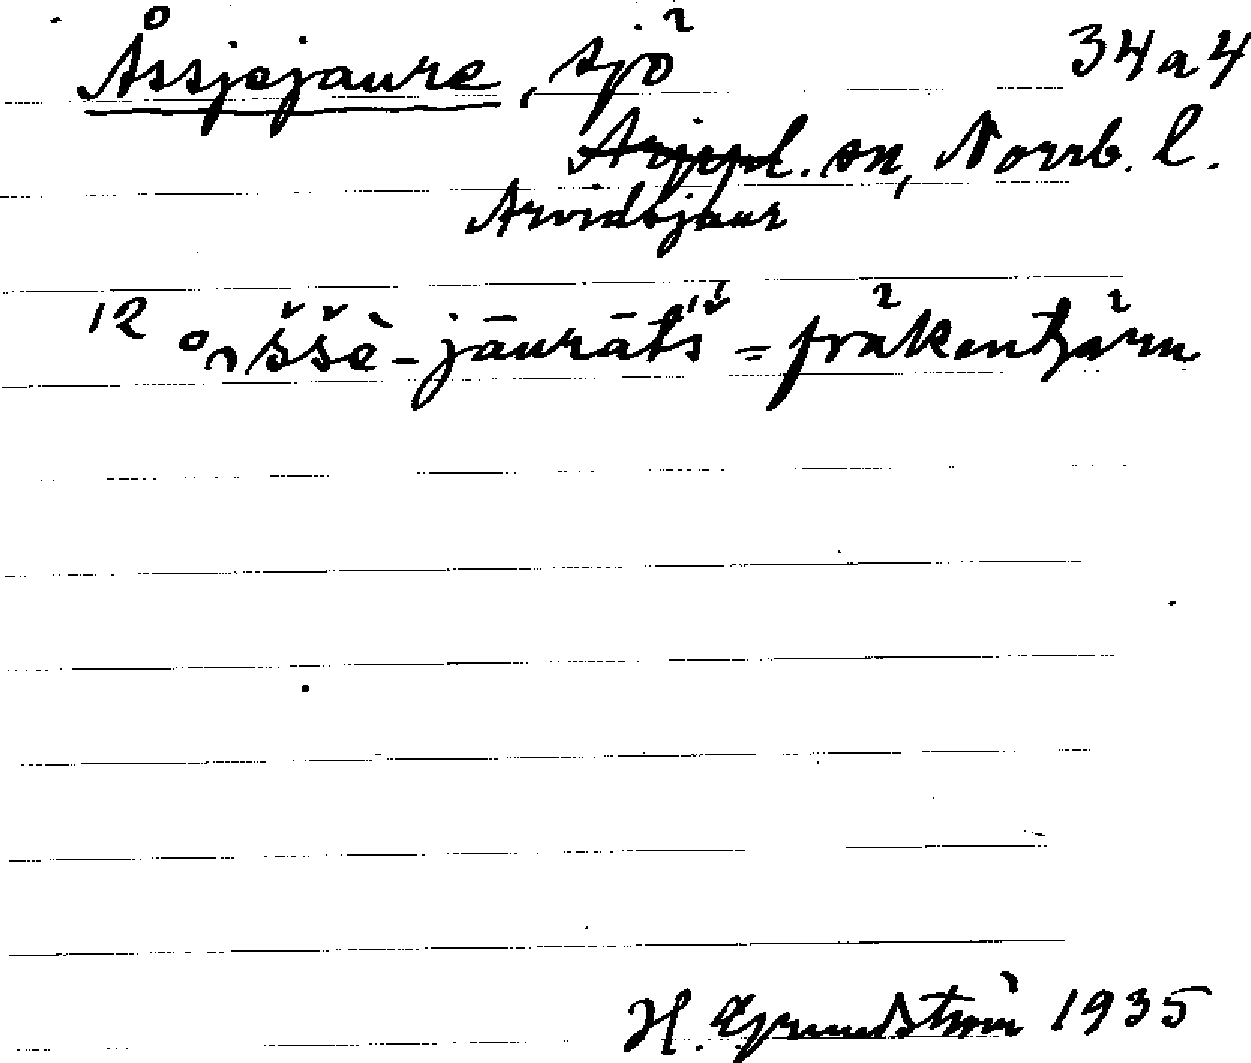 Åssjejaure, sjö 34a4
Arjepl. sn, Norrb. l.
Arvidsjaur
12 å̀ššē-jāurāt́š = fräkentjärn
H. Grundström 1935